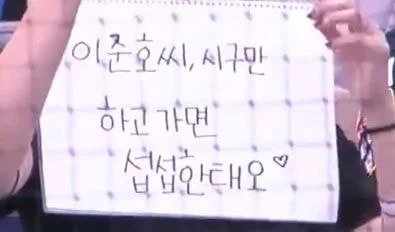 이준호씨, 시구만
하고 가면
섭섭한대오♡